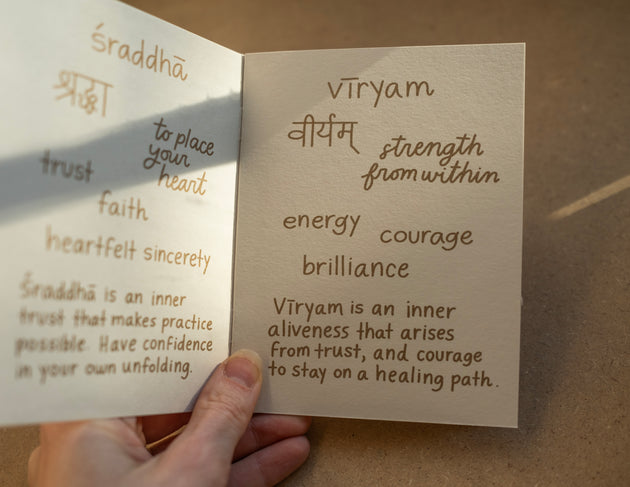 śraddhā
श्रद्धा
to place
your
heart
trust
faith
heartfelt sincerety
Śraddhā is an inner
trust that makes practice
possible. Have confidence
in your own unfolding.
vīryam
वीर्यम्
strength
from within
energy
courage
brilliance
Vīryam is an inner
aliveness that arises
from trust, and courage
to stay on a healing path.